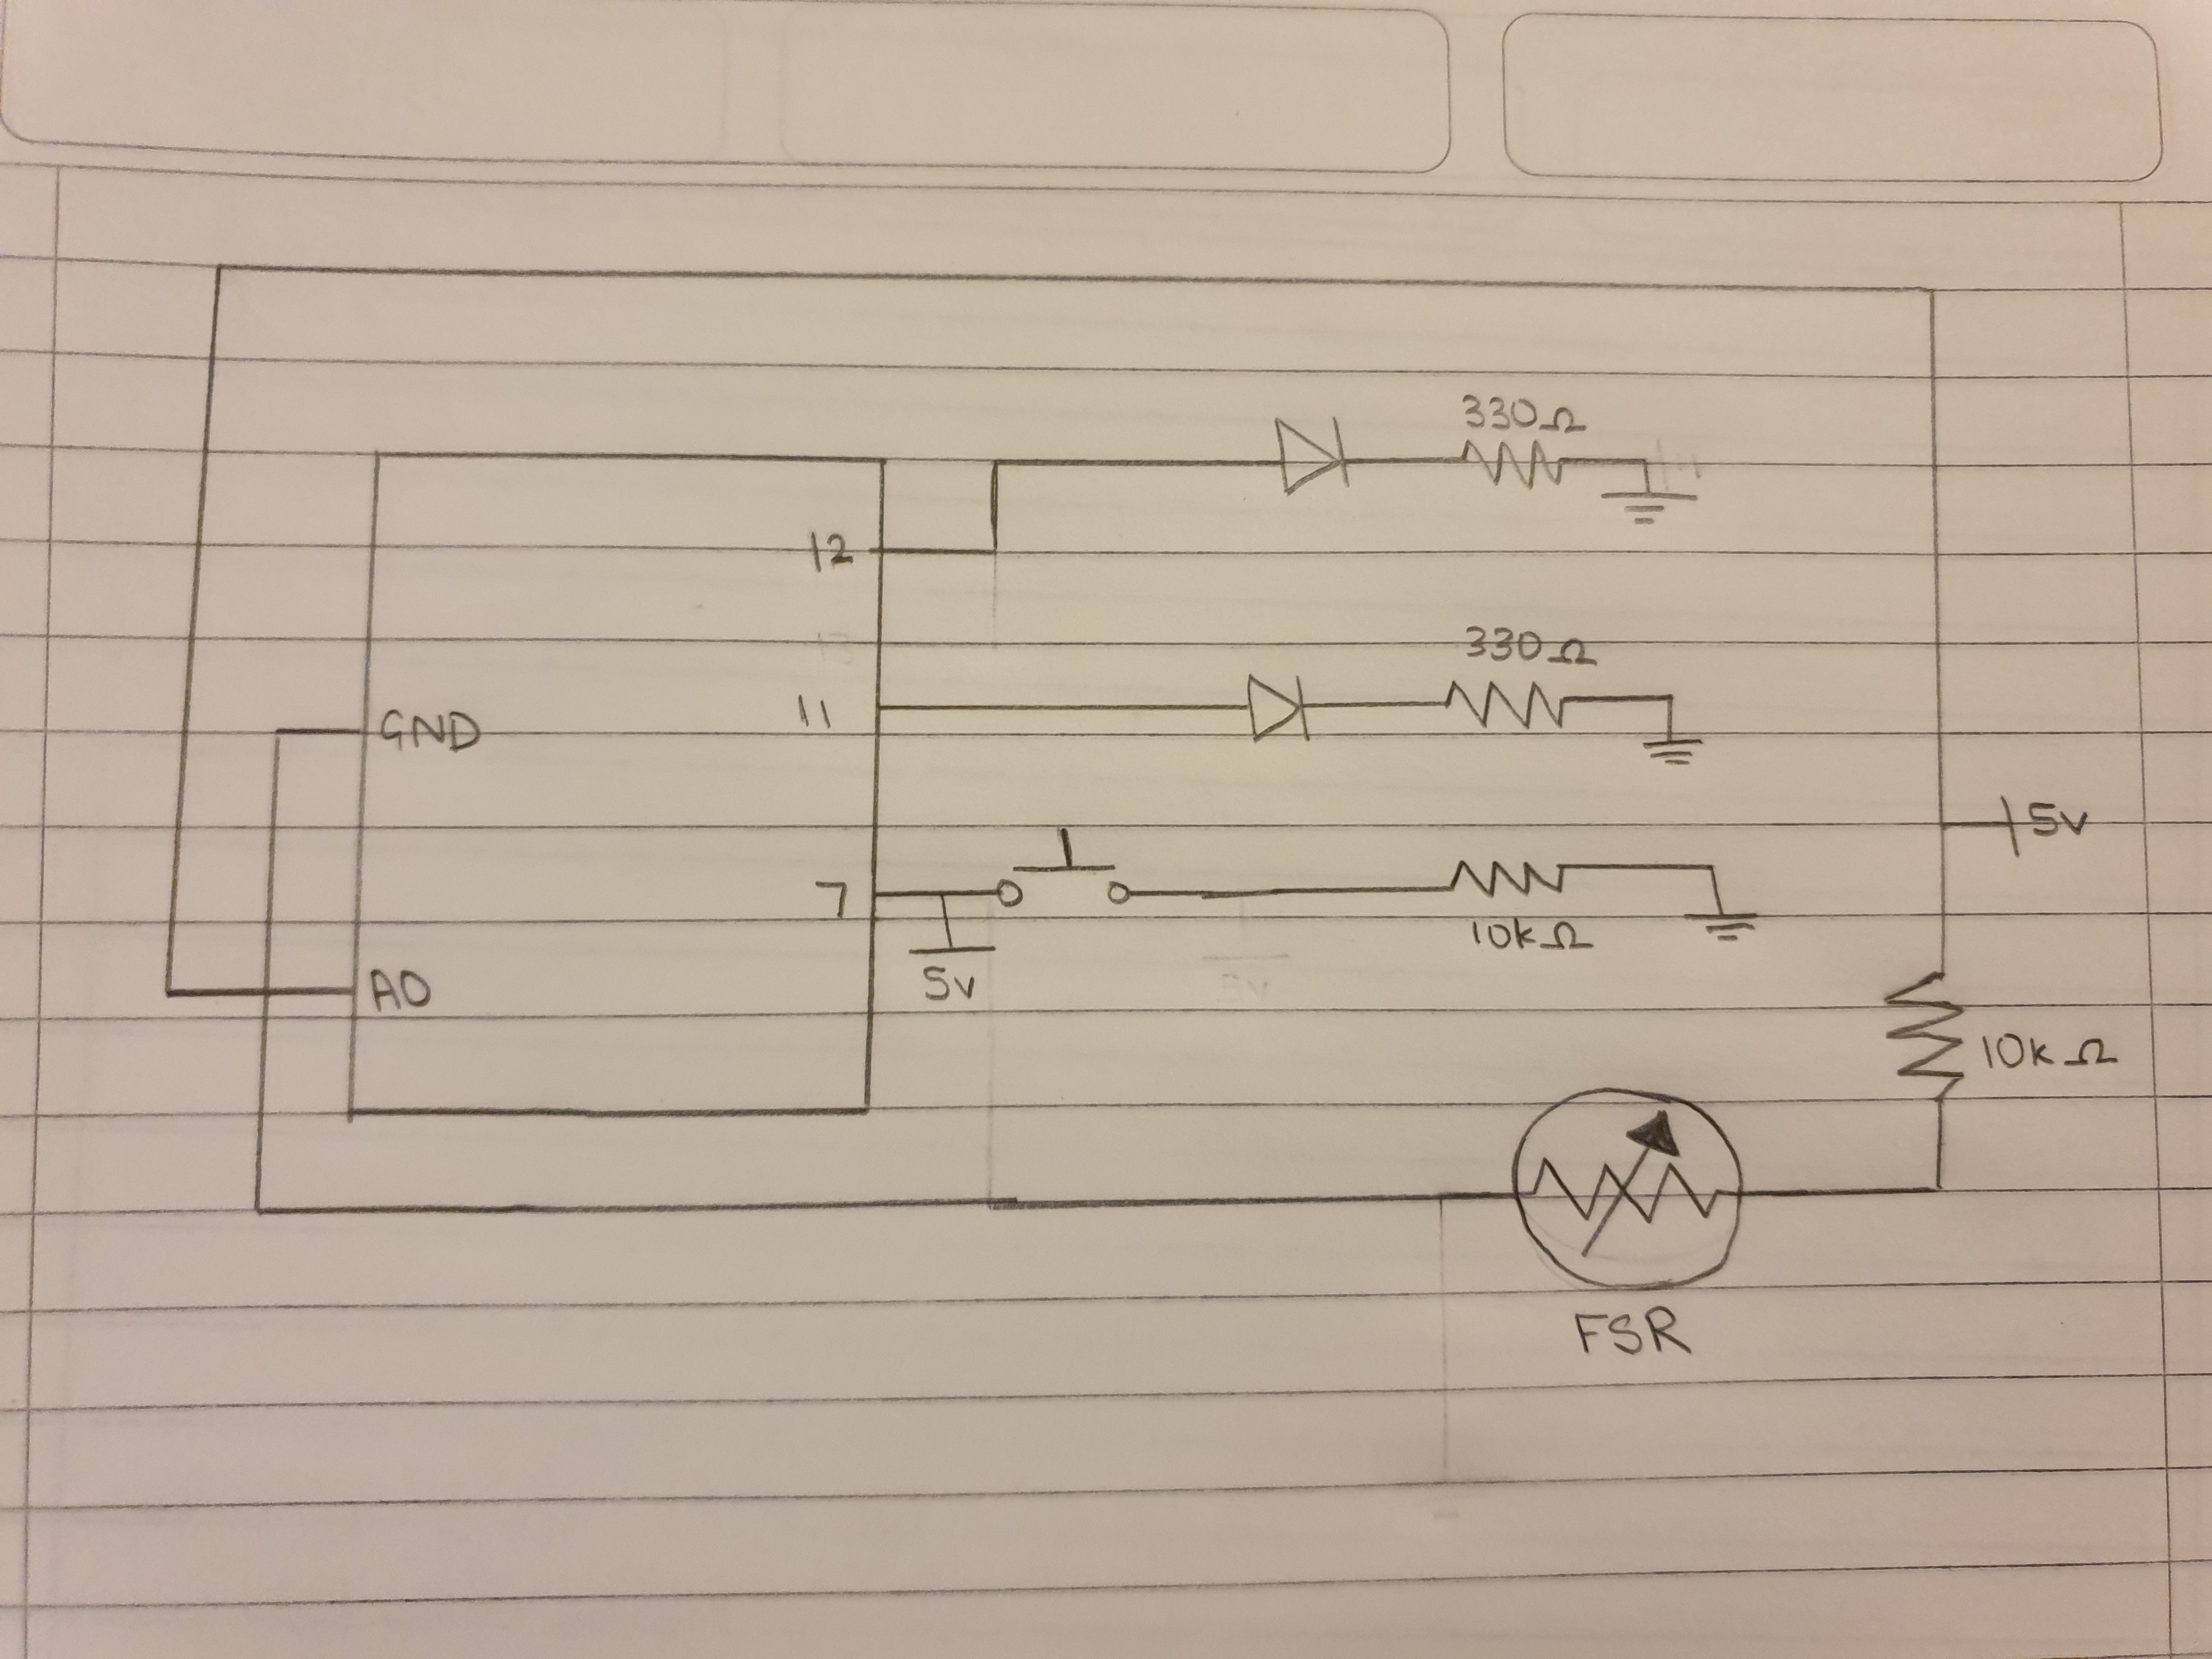 330Ω
12
330Ω
11
GND
5v
7
10kΩ
5v
A0
10kΩ
FSR